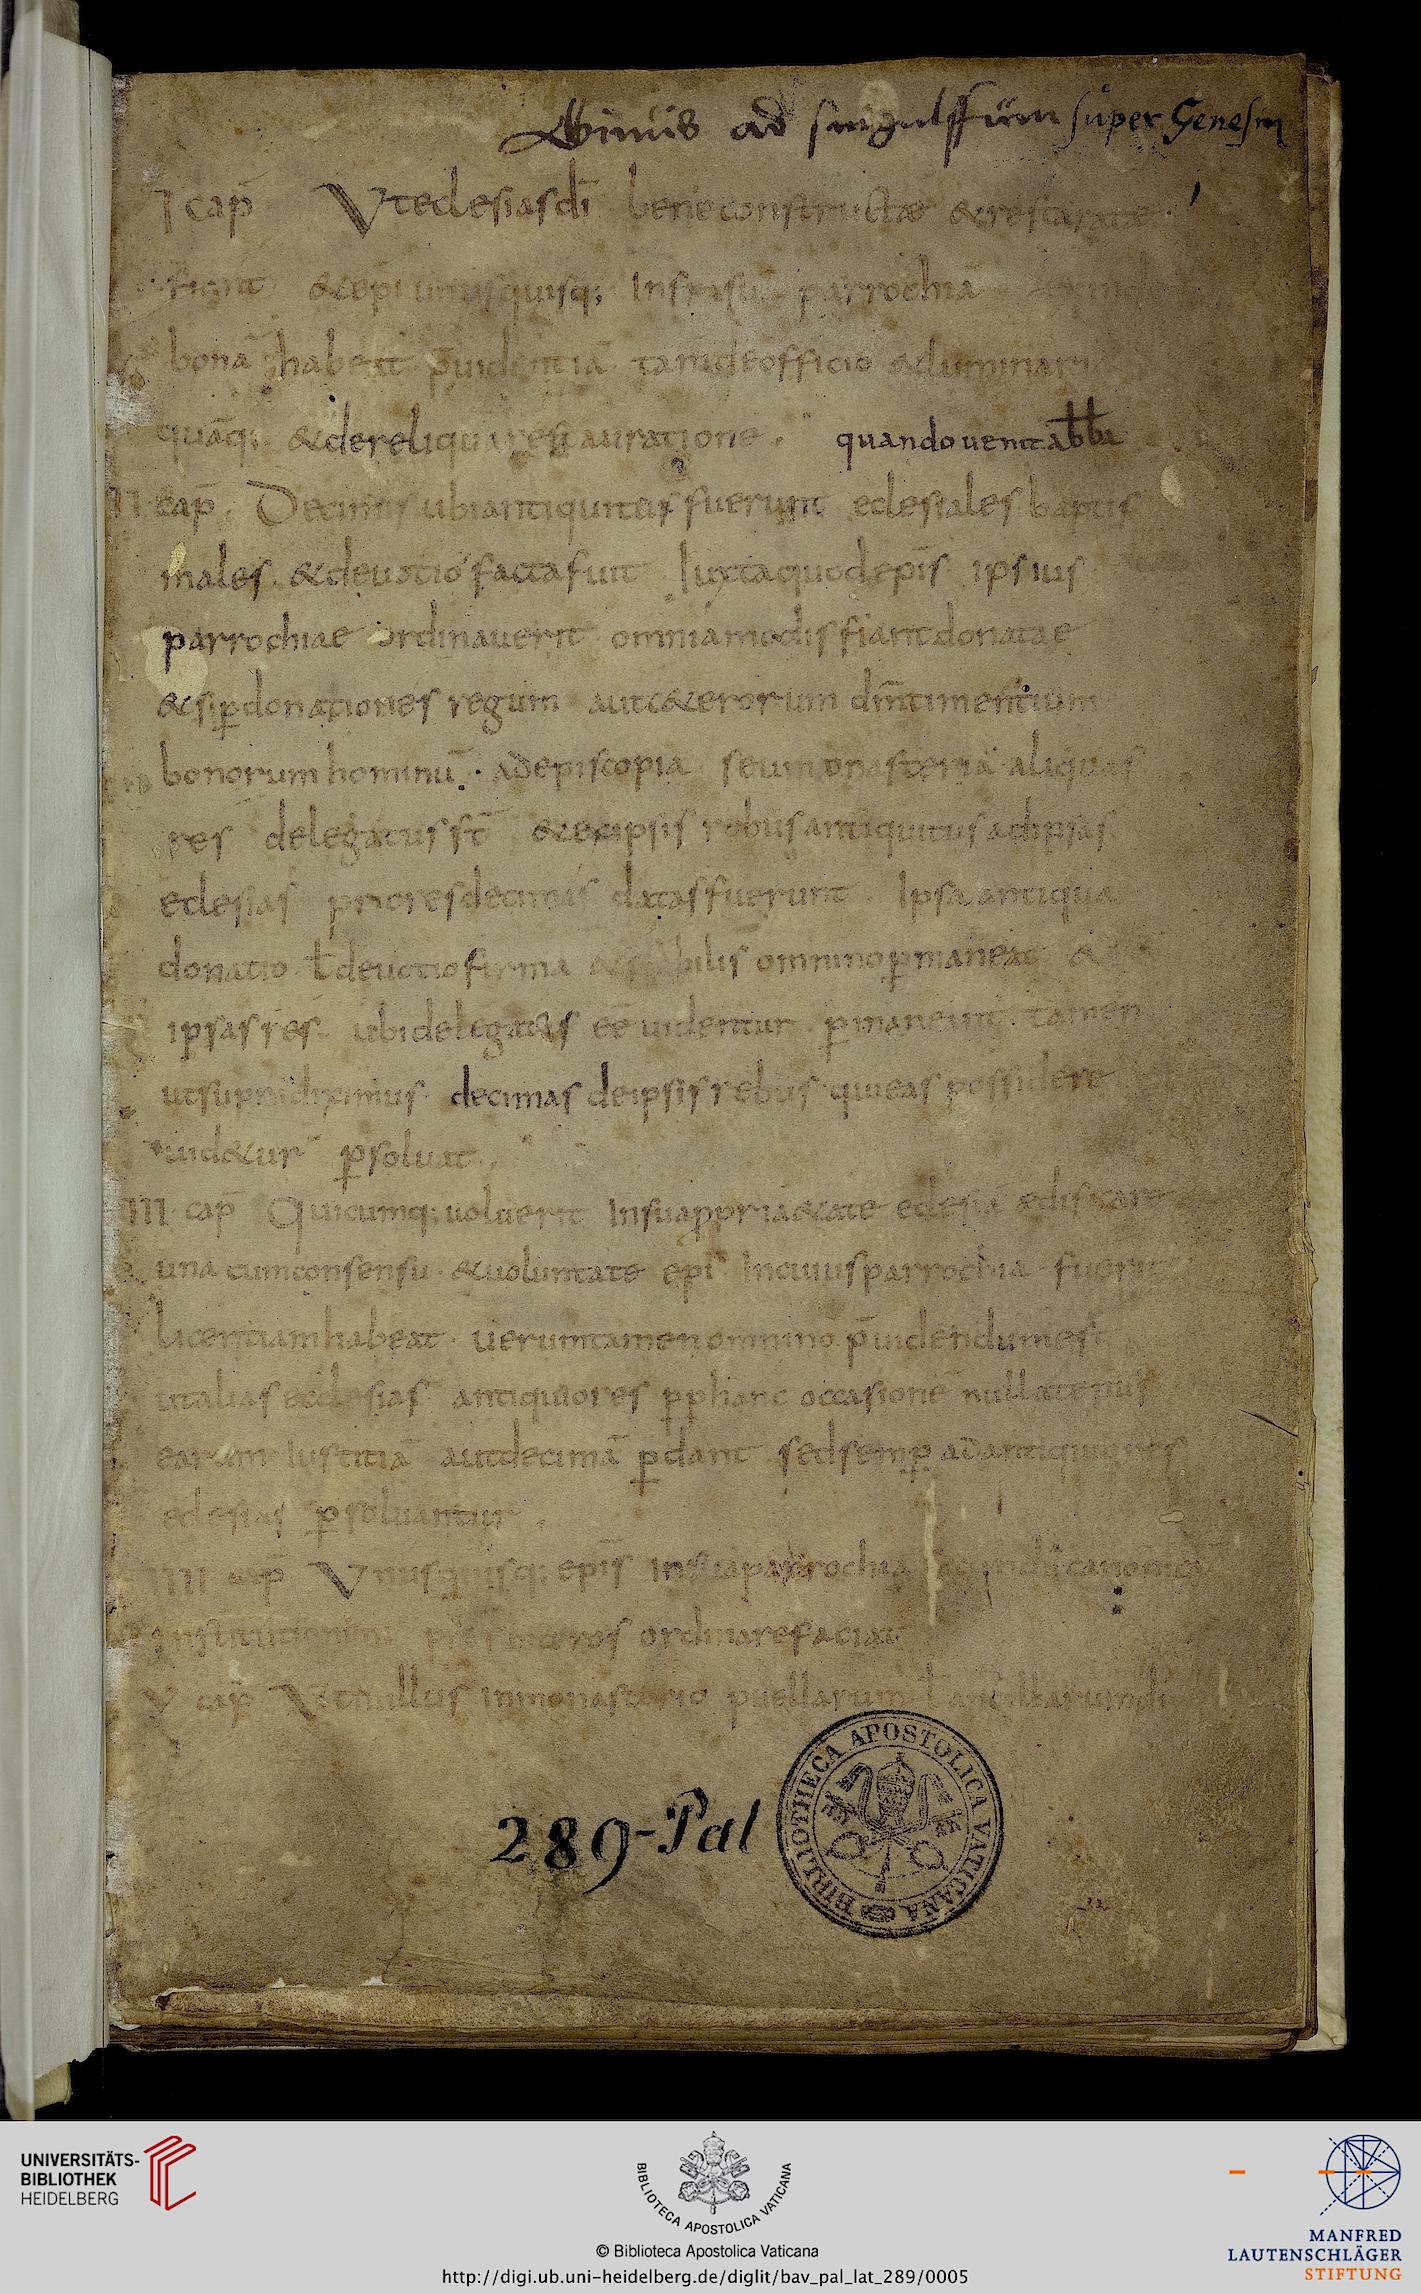 Albinus ad singulffum super Genesin
I cap̄ Vteclesiasdī bene constructæ &restaratae 1
fiant &epī unusquisq; Insuā parrochiā
bonā habeat p̄uidentiā tamdeofficio &luminaria
quāq; &dereliqua restauratione. quandouenitabba
II cap̄. Decimis ubiantiquitus fuerunt eclesiales baptis
males. &deuotio factafuit. Iuxtaquodepīs ipsius
parrochiae ordinauerit omnimodis fiantdonatae
&siꝑdonationes regum aut&&erorum dm̄timentium
bonorumhominū. adepiscopia seumonasteria aliquas
res delegatus st̄ &exipsis rebusantiquitusadipsas
eclesias prioresdecimas datasfuerunt. Ipsa antiqua
donatio ł deuotiofirma &stabilis omninoꝑmaneat &
ipsasres ubidelegatus eē uidentur ꝑmaneunt. tamen
utsupradiximus decimas deipsisrebus quieas possidere
uid&ur ꝑsoluat.
III cap̄ Quicumq; uoluerit Insuaꝓpriá&ate eclesiā edificare
una cumconsensu. &uoluntate epī Incuiusparrochia fuerit
licentiamhabeat. uerumtamenomnino p̄uidendumest
utalias ecclesias antiquiores ꝓphanc occasionē nullatenus
earum Iustitiā autdecimā ꝑdant sedsemꝑ adantiquiores
eclesias ꝑsoluantur.
IIII cap̄ Vnusquisq; epīs Insuaparrochia canonicā
institutionem presbiteros ordinarefaciat
V cap̄ Vtnullus inmonasterio puellarum ł ancillarumdī
289-Pal
BIBLIOTHECA APOSTOLICA VATICANA
UNIVERSITÄTS-
BIBLIOTHEK
HEIDELBERG
BIBLIOTECA APOSTOLICA VATICANA
© Biblioteca Apostolica Vaticana
http://digi.ub.uni-heidelberg.de/diglit/bav_pal_lat_289/0005
MANFRED
LAUTENSCHLÄGER
STIFTUNG